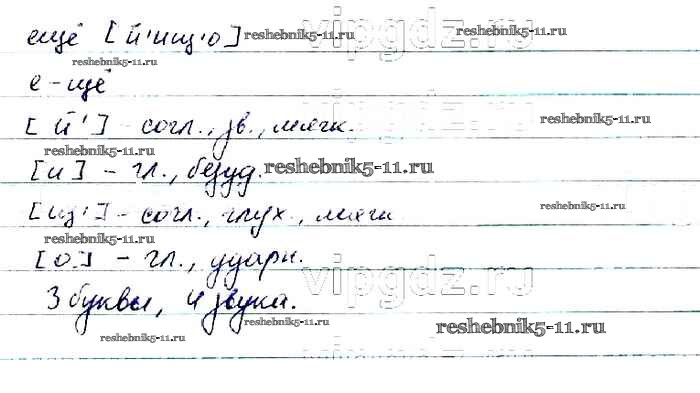 ещё [й'ищ'о] reshebnik5-11.ru vipgdz.ru reshebnik5-11.ru
reshebnik5-11.ru
е-щё
vipgdz.ru
[й'] - согл., зв., мягк. reshebnik5-11.ru reshebnik5-11.ru
reshebnik5-11.ru
[и] - гл., безуд. reshebnik5-11.ru
[щ'] - согл., глух., мягк. reshebnik5-11.ru
reshebnik5-11.ru
[о] - гл., ударн.
vipgdz.ru
3 буквы, 4 звука.
reshebnik5-11.ru reshebnik5-11.ru
reshebnik5-11.ru
vipgdz.ru